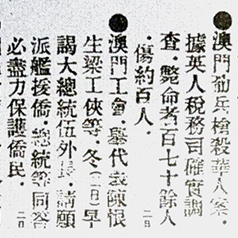 ●澳門葡兵槍殺華人案．
據英人稅務司確實調
查．斃命者百七十餘人
．傷約百人．　二日
●澳門工會．舉代表陳恨
生梁工俠等．冬（二日）早
謁大總統伍外長．請願
派艦援僑．總統等同答
必盡力保護僑民．　二日